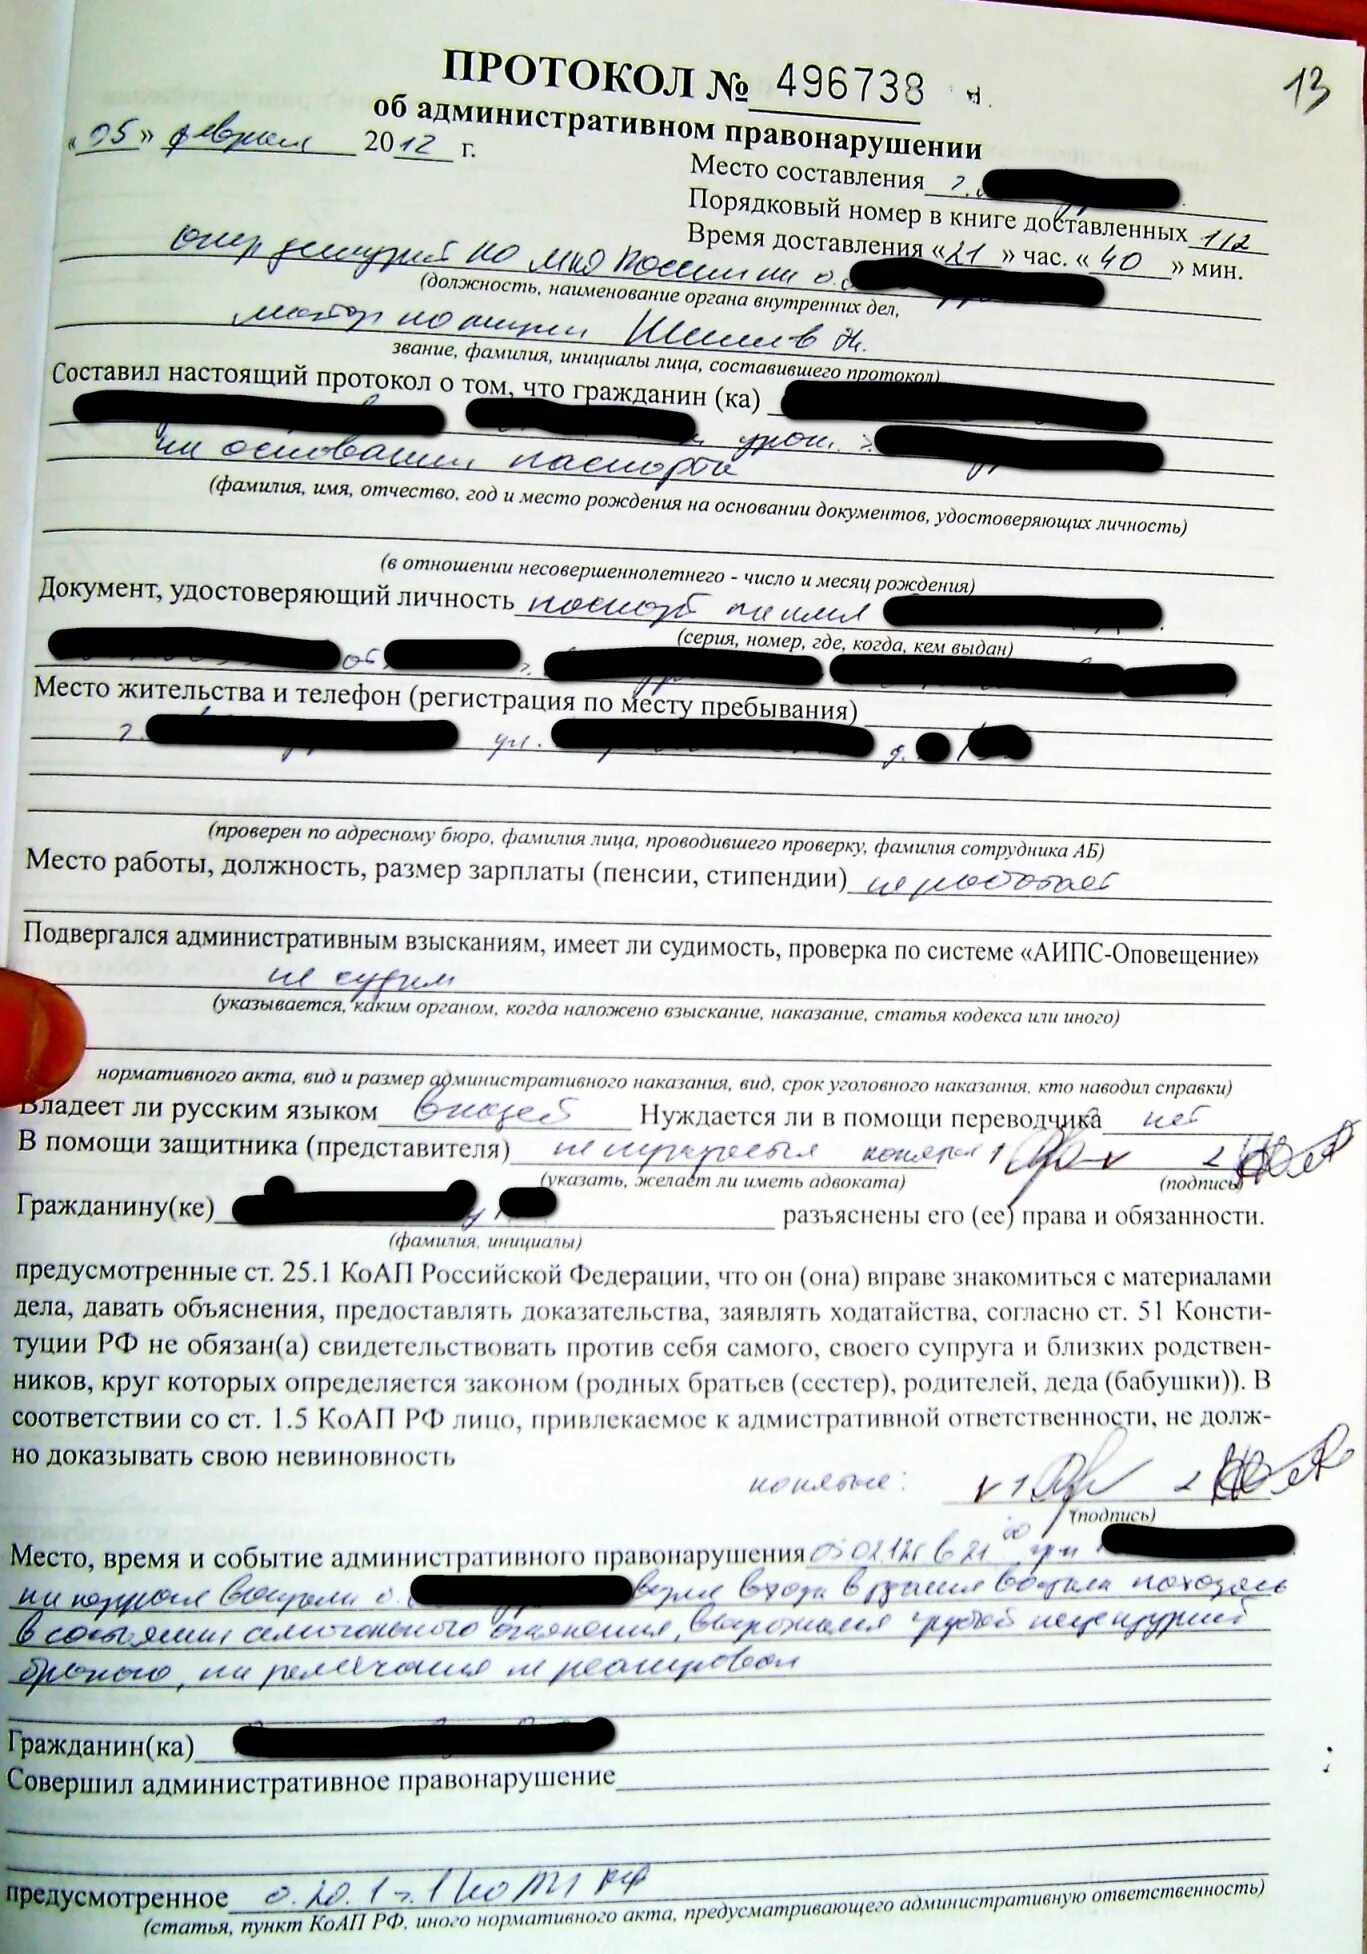 13
ПРОТОКОЛ № 496738
об административном правонарушении
« 05 » февраля 2012 г.
Место составления г.
Порядковый номер в книге доставленных 112
Время доставления « 21 » час. « 40 » мин.
России
(должность, наименование органа внутренних дел,
майор полиции
звание, фамилия, инициалы лица, составившего протокол)
Составил настоящий протокол о том, что гражданин (ка)
урож. г.
на основании паспорта
(фамилия, имя, отчество, год и место рождения на основании документов, удостоверяющих личность)
(в отношении несовершеннолетнего - число и месяц рождения)
Документ, удостоверяющий личность паспорт
(серия, номер, где, когда, кем выдан)
Место жительства и телефон (регистрация по месту пребывания)
г. ул. д.
(проверен по адресному бюро, фамилия лица, проводившего проверку, фамилия сотрудника АБ)
Место работы, должность, размер зарплаты (пенсии, стипендии) не работает
Подвергался административным взысканиям, имеет ли судимость, проверка по системе «АИПС-Оповещение»
не судим
(указывается, каким органом, когда наложено взыскание, наказание, статья кодекса или иного)
нормативного акта, вид и размер административного наказания, вид, срок уголовного наказания, кто наводил справки)
Владеет ли русским языком владеет Нуждается ли в помощи переводчика нет
В помощи защитника (представителя) понятые 1 2
(указать, желает ли иметь адвоката) (подпись)
Гражданину(ке) разъяснены его (ее) права и обязанности.
(фамилия, инициалы)
предусмотренные ст. 25.1 КоАП Российской Федерации, что он (она) вправе знакомиться с материалами
дела, давать объяснения, предоставлять доказательства, заявлять ходатайства, согласно ст. 51 Консти-
туции РФ не обязан(а) свидетельствовать против себя самого, своего супруга и близких родствен-
ников, круг которых определяется законом (родных братьев (сестер), родителей, деда (бабушки)). В
соответствии со ст. 1.5 КоАП РФ лицо, привлекаемое к адмистративной ответственности, не долж-
но доказывать свою невиновность
понятые: v 1 2
(подпись)
Место, время и событие административного правонарушения 05.02.12г в 21 00
на перроне вокзала возле входа в здания вокзала находясь
в состоянии алкогольного опьянения, выражался грубой нецензурной
бранью, на замечания не реагировал
Гражданин(ка)
Совершил административное правонарушение
предусмотренное 20.1 ч.1 КоАП РФ
(статья, пункт КоАП РФ, иного нормативного акта, предусматривающего административную ответственность)